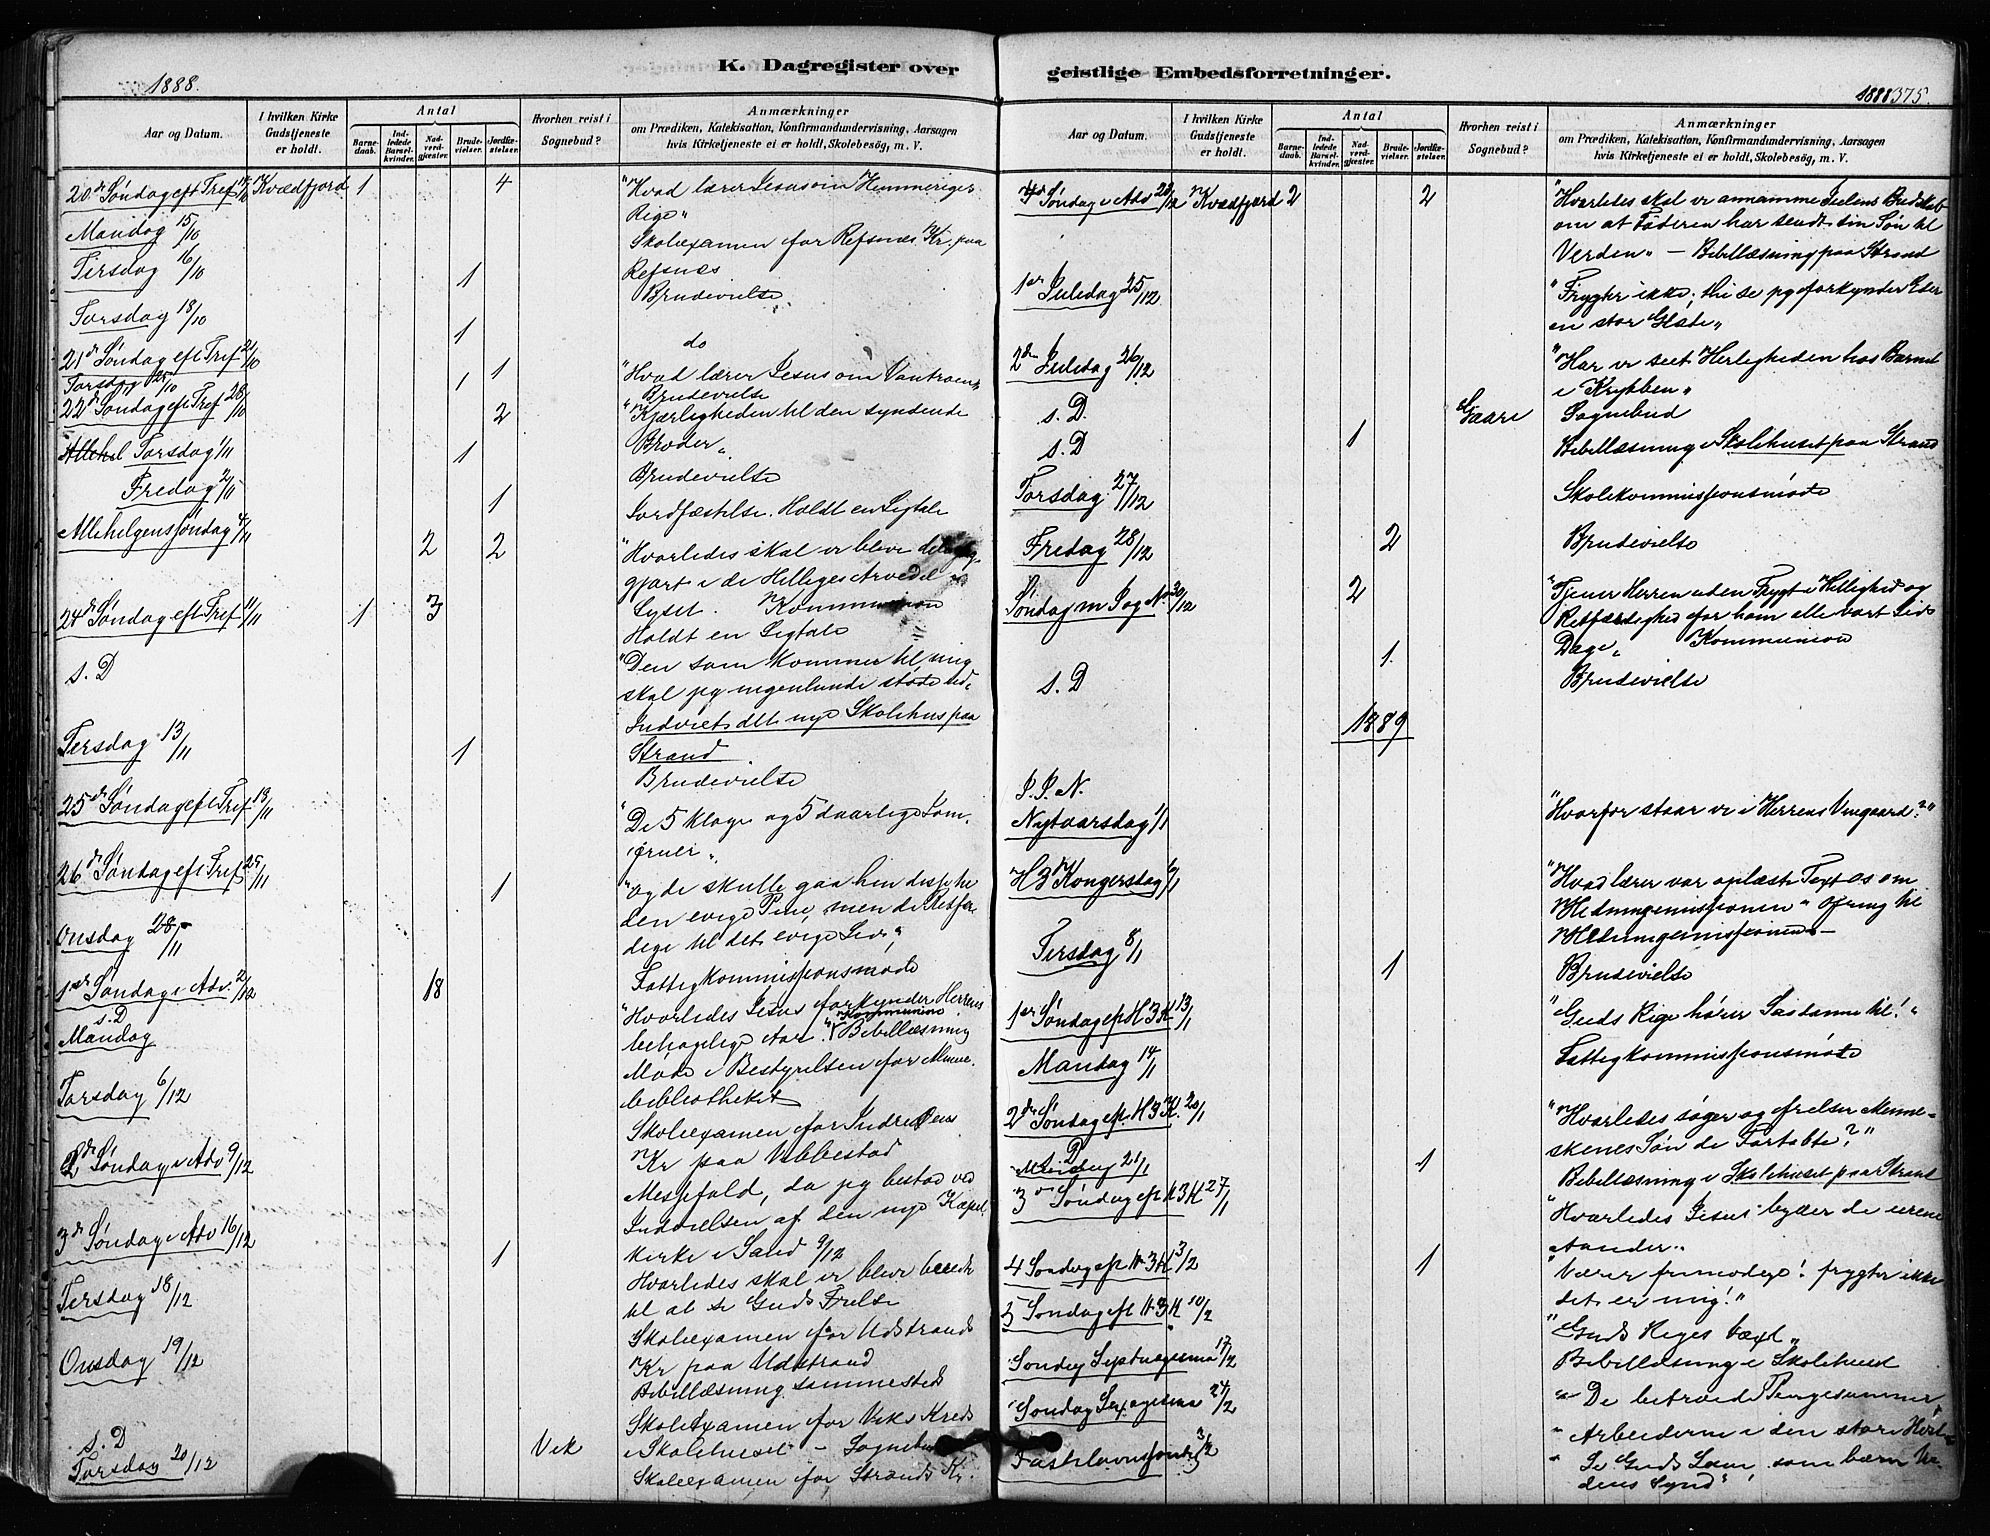 K. Dagregister over
1888.
Aar og Datum.
I hvilken Kirke Gudstjeneste er holdt.
Antal
Barne-daab.
Ind-ledede Barsel-kvinder.
Nad-verd-gjester.
Brude-vielser.
Jordfæ-stelser.
Hvorhen reist i Sognebud?
Anmærkninger
om Prædiken, Katekisation, Konfirmandundervisning, Aarsagen
hvis Kirketjeneste ei er holdt, Skolebesøg, m. V.
20de Søndag eft Tref 14/10 Kvædfjord 1 4 "Hvad lærer Jesus om Himmeriges
Rige"
Mandag 15/10 Skoleexamen for Refsnæs Kr. paa
Refsnæs
Tirsdag 16/10 1 Brudevielse
Torsdag 18/10 1 do
21de Søndag eft Tref 21/10 1 "Hvad lærer Jesus om Vantroen"
Torsdag 25/10 1 Brudevielse
22de Søndag eft Tref 28/10 2 "Kjærligheden til den syndende
Broder"
Allehel Torsdag 1/11 1 Brudevielse
Fredag 2/11 1 Jordfæstelse. Holdt en Ligtale
Allehelgenssøndag 4/11 2 2 "Hvorledes skal vi blive delag
gjort i de Helliges Arvedel i
Lyset. Kommunion
Holdt en Ligtale
24de Søndag eft Tref 11/11 1 3 "Den som kommer til mig
skal jeg ingenlunde støde ud"
s. D Indviet det nye Skolehus paa
Strand
Tirsdag 13/11 1 Brudevielse
25de Søndag eft Tref 18/11 "De 5 kloge og 5 daarlige Jom-
fruer"
26de Søndag eft Tref 25/11 1 "og de skulle gaa hen disse til
den evige Pine, men de Retfær-
dige til det evige Liv"
Onsdag 28/11 Fattigkommissionsmøde
1ste Søndag i Adv. 2/12 18 "Hvorledes Jesus forkynder Herrens
behagelige Aar" Kommunion
s. D Bibellæsning
Mandag Møde i Bestyrelsen for Almue-
bibliotheket
Torsdag 6/12 Skoleexamen for Indre Øens
Kr paa Vebbestad
2den Søndag i Adv 9/12 Messefald, da jeg bestod ved
Indvielsen af den nye Kapel-
kirke i Sand 9/12
3de Søndag i Adv 16/12 1 Hvorledes skal vi blive berede
til at se Guds Frelse
Tirsdag 18/12 Skoleexamen for Udstrands
Kr paa Udstrand
Bibellæsning sammesteds
Onsdag 19/12 Skoleexamen for Viks Kreds
s. D Vik i Skolehuset – Sognebud
Torsdag 20/12 Skoleexamen for Strands Kr.
geistlige Embedsforretninger.
1888 375.
Aar og Datum.
I hvilken Kirke Gudstjeneste er holdt.
Antal
Barne-daab.
Ind-ledede Barsel-kvinder.
Nad-verd-gjester.
Brude-vielser.
Jordfæ-stelser.
Hvorhen reist i Sognebud?
Anmærkninger
om Prædiken, Katekisation, Konfirmandundervisning, Aarsagen
hvis Kirketjeneste ei er holdt, Skolebesøg, m. V.
4de Søndag i Adv 23/12 Kvædfjord 2 2 "Hvorledes skal vi annamme Julens Budskab
om at Faderen har sendt sin Søn til
Verden" – Bibellæsning paa Strand
1ste Juledag 25/12 "Frygter ikke, thi se jeg forkynder Eder
en stor Glæde"
2den Juledag 26/12 "Har vi seet Herligheden hos Barnet
i Krybben"
s. D. Gaare Sognebud
s. D 1 Bibellæsning i Skolehuset paa Strand
Torsdag 27/12 Skolekommissionsmøde
Fredag 28/12 2 Brudevielse
Søndag m J og N. 30/12 2 "Tjener Herren uden Frygt i Hellighed og
Retfærdighed for ham alle vort Livs
Dage" Kommunion
s. D 1. Brudevielse
1889
Nytaarsdag 1/1 "Hvorfor staar vi i Herrens Vingaard?"
H 3 Kongersdag 6/1 "Hvad lærer vor oplæste Text os om
Hedningemissionen" Ofring til
Hedningemissionen –
Tirsdag 8/1 1 Brudevielse
1ste Søndag ef H 3 K 13/1 "Guds Rige hører Saadanne til!"
Mandag 14/1 Fattigkommissionsmøde
2den Søndag ef. H 3 K. 20/1 "Hvorledes søger og frelser Menne-
skenes Søn de Fortabte?"
s. D
Mandag 21/1 1 Bibellæsning i Skolehuset paa Strand
3die Søndag ef H 3 K 27/1 "Hvorledes Jesus byder de urene
Aander"
4 Søndag ef H 3 K 3/2 1 "Værer frimodige! frygter ikke
det er mig!"
5 Søndag eft H 3 K 10/2 "Guds Riges Vext"
Bibellæsning i Skolehuset
Søndag Septuagesima 17/2 "De betroede Pengesummer"
Søndag Sexagesima 24/2 "Arbeiderne i den store Høst"
Fastelavnssøndag 3/3 "Se Guds Lam, som bærer Ver-
dens Synd"